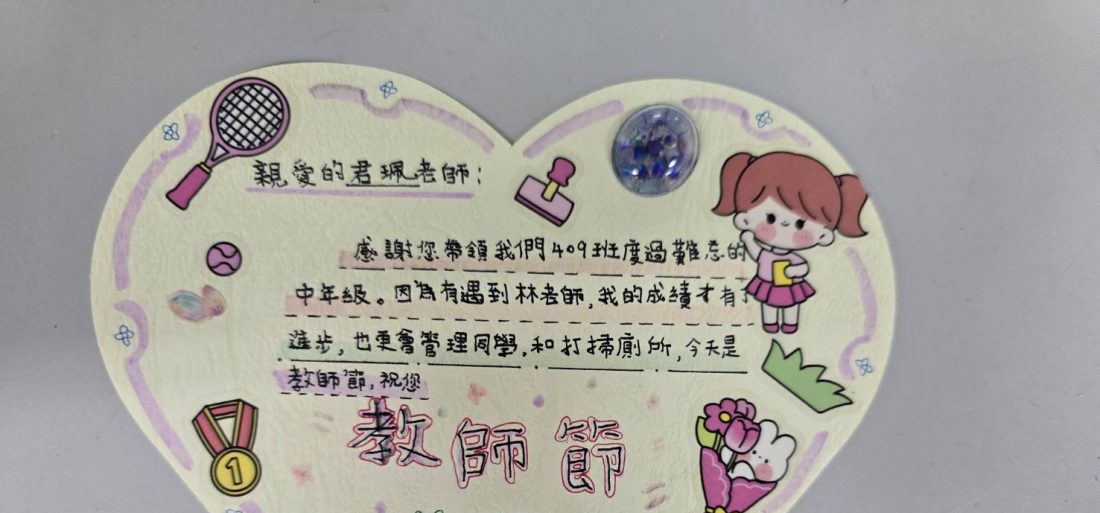 親愛的君珮老師：
感謝您帶領我們409班度過難忘的
中年級。因為有遇到林老師，我的成績才有了
進步，也更會管理同學，和打掃廁所，今天是
教師節，祝您
教師節
1